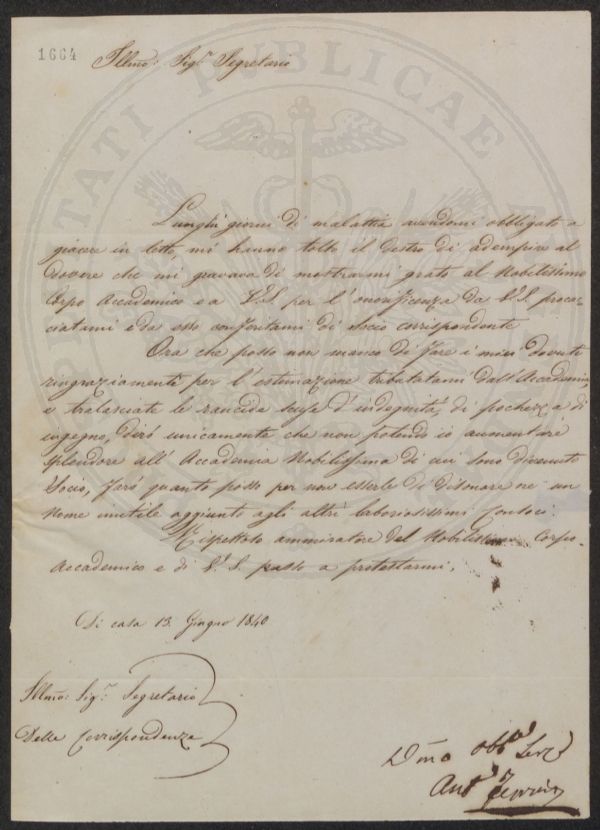 1664
Illmo: Sigr. Segretario
Lunghi giorni di malattia avendomi obbligato a
giacere in letto, mi hanno tolto il destro di adempire al
dovere che mi gravava di mostrarmi grato al Nobilissimo
Corpo Accademico e a V.S. per l'onorificenza da V.S. procac-
ciatami e da esso conferitami di Socio corrispondente
Ora che posso non manco di fare i miei dovuti
ringraziamenti per l'estimazione tributatami dall'Accademia
e tralasciate le rancide scuse d'indegnità, di pochezza di
ingegno, dirò unicamente che non potendo io aumentare
splendore all'Accademia Nobilissima di cui sono divenuto
Socio, farò quanto posso per non esserle di disonore nè un
nome inutile aggiunto agli altri laboriosissimi
Rispettoso ammiratore del Nobilissimo Corpo
Accademico e di V.S. passo a protestarmi,
Di casa 13 Giugno 1840
Illmo: Sigr. Segretario
Della Corrispondenza
Dmo Obbo Serv
Anto
PUBLICAE